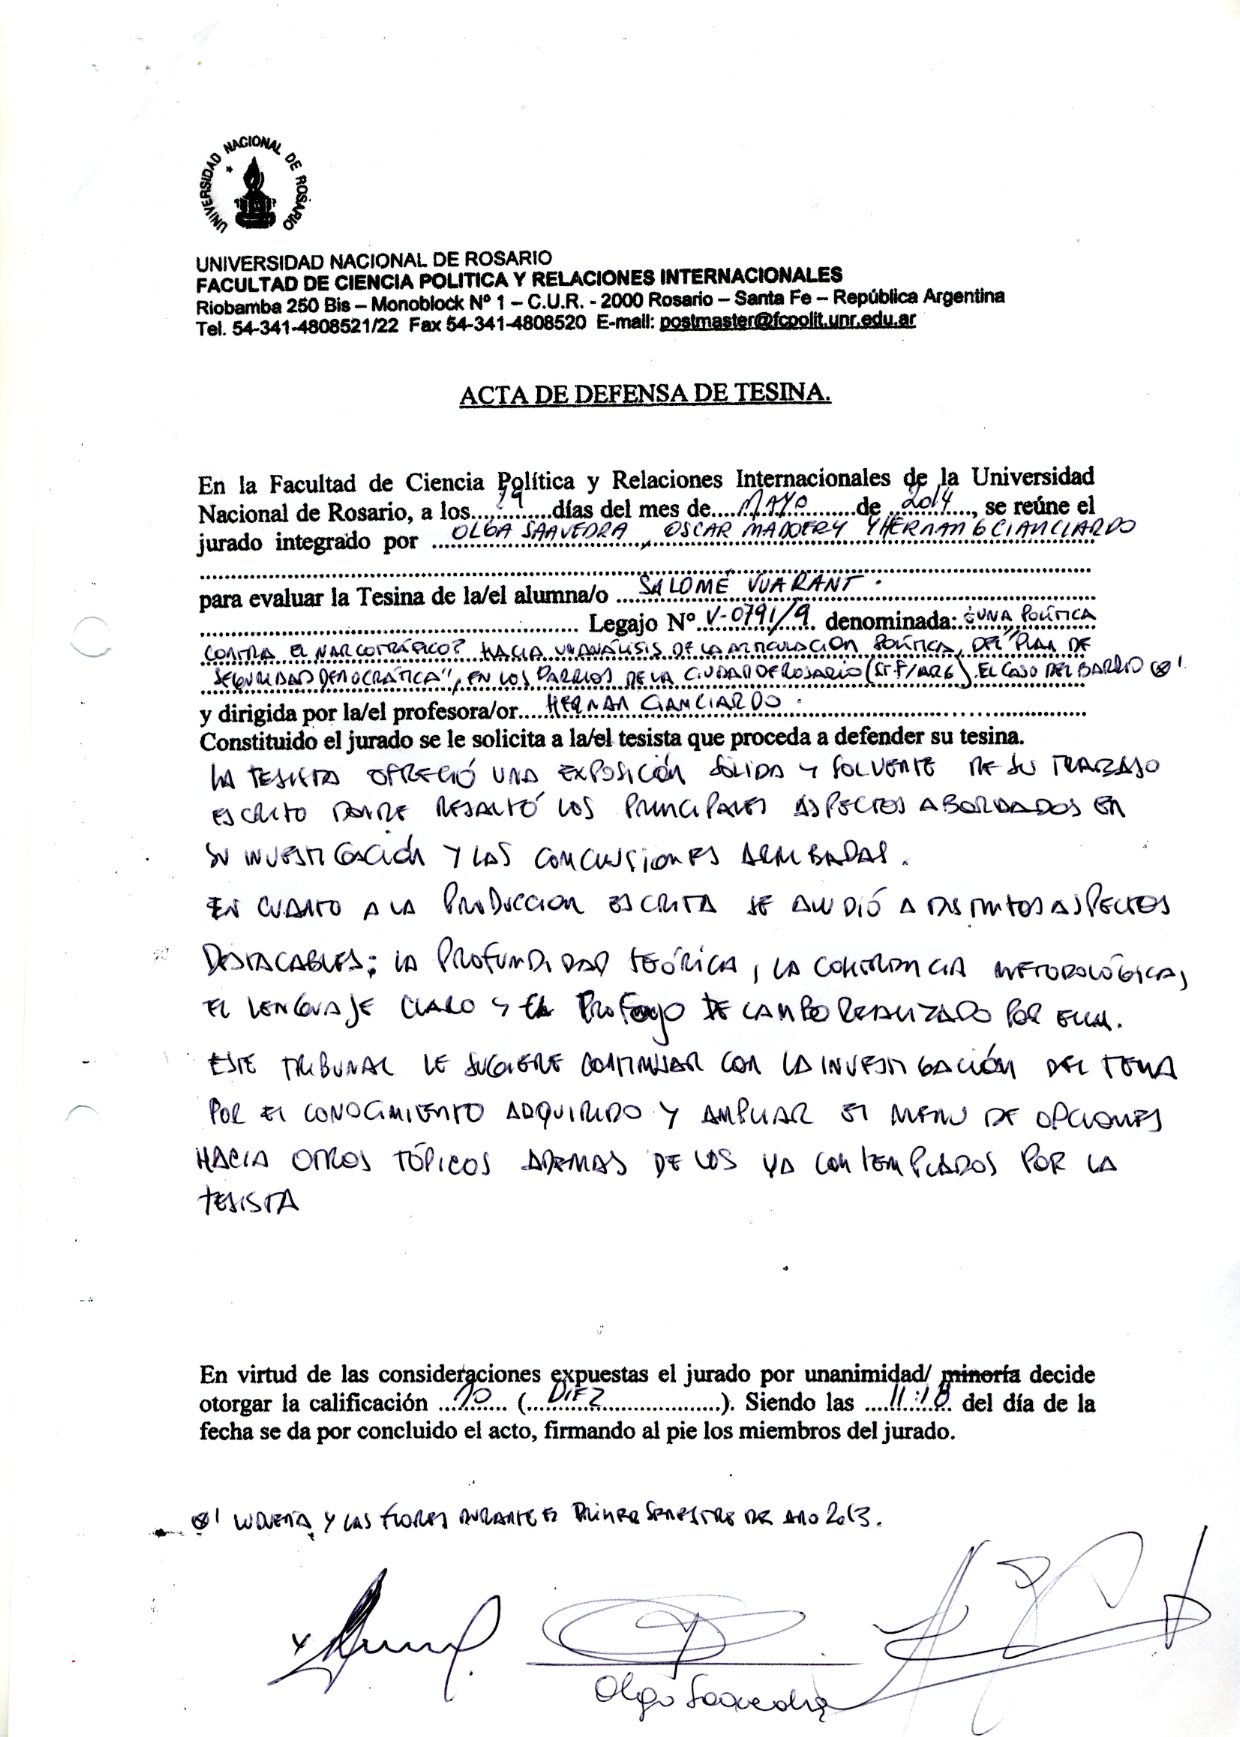 UNIVERSIDAD NACIONAL DE ROSARIO
UNIVERSIDAD NACIONAL DE ROSARIO
FACULTAD DE CIENCIA POLITICA Y RELACIONES INTERNACIONALES
Riobamba 250 Bis – Monoblock Nº 1 – C.U.R. - 2000 Rosario – Santa Fe – República Argentina
Tel. 54-341-4808521/22 Fax 54-341-4808520 E-mail: postmaster@fcpolit.unr.edu.ar
ACTA DE DEFENSA DE TESINA.
En la Facultad de Ciencia Política y Relaciones Internacionales de la Universidad
Nacional de Rosario, a los 29 días del mes de MAYO de 2014, se reúne el
jurado integrado por OLGA SAAVEDRA, OSCAR MADOERY Y HERNAN GCIANCIARDO
para evaluar la Tesina de la/el alumna/o SALOMÉ VUARANT.
Legajo Nº V-0791/9. denominada: ¿UNA POLÍTICA
CONTRA EL NARCOTRÁFICO? HACIA UN ANÁLISIS DE LA ARTICULACION POLÍTICA, DEL "PLAN DE
SEGURIDAD DEMOCRÁTICA", EN LOS BARRIOS DE LA CIUDAD DE ROSARIO (STF/ARG). EL CASO DEL BARRIO ⊗'
y dirigida por la/el profesora/or HERNAN CIANCIARDO.
Constituido el jurado se le solicita a la/el tesista que proceda a defender su tesina.
LA TESISTA OFRECIÓ UNA EXPOSICIÓN SÓLIDA Y SOLVENTE DE SU TRABAJO
ESCRITO DONDE RESALTÓ LOS PRINCIPALES ASPECTOS ABORDADOS EN
SU INVESTIGACIÓN Y LAS CONCLUSIONES ARRIBADAS.
EN CUANTO A LA PRODUCCION ESCRITA SE ALUDIÓ A DISTINTOS ASPECTOS
DESTACABLES: LA PROFUNDIDAD TEÓRICA, LA COHERENCIA METODOLÓGICA,
EL LENGUAJE CLARO Y EL PROFUNDO DE CAMPO REALIZADO POR ELLA.
ESTE TRIBUNAL LE SUGIERE CONTINUAR CON LA INVESTIGACIÓN DEL TEMA
POR EL CONOCIMIENTO ADQUIRIDO Y AMPLIAR EL MENU DE OPCIONES
HACIA OTROS TÓPICOS ADEMAS DE LOS YA CONTEMPLADOS POR LA
TESISTA
En virtud de las consideraciones expuestas el jurado por unanimidad/ minoría decide
otorgar la calificación 10 (DIEZ). Siendo las 11:18 del día de la
fecha se da por concluido el acto, firmando al pie los miembros del jurado.
⊗' LUDUEÑA Y LAS FLORES DURANTE EL PRIMER SEMESTRE DE AÑO 2013.
Olga Saavedra